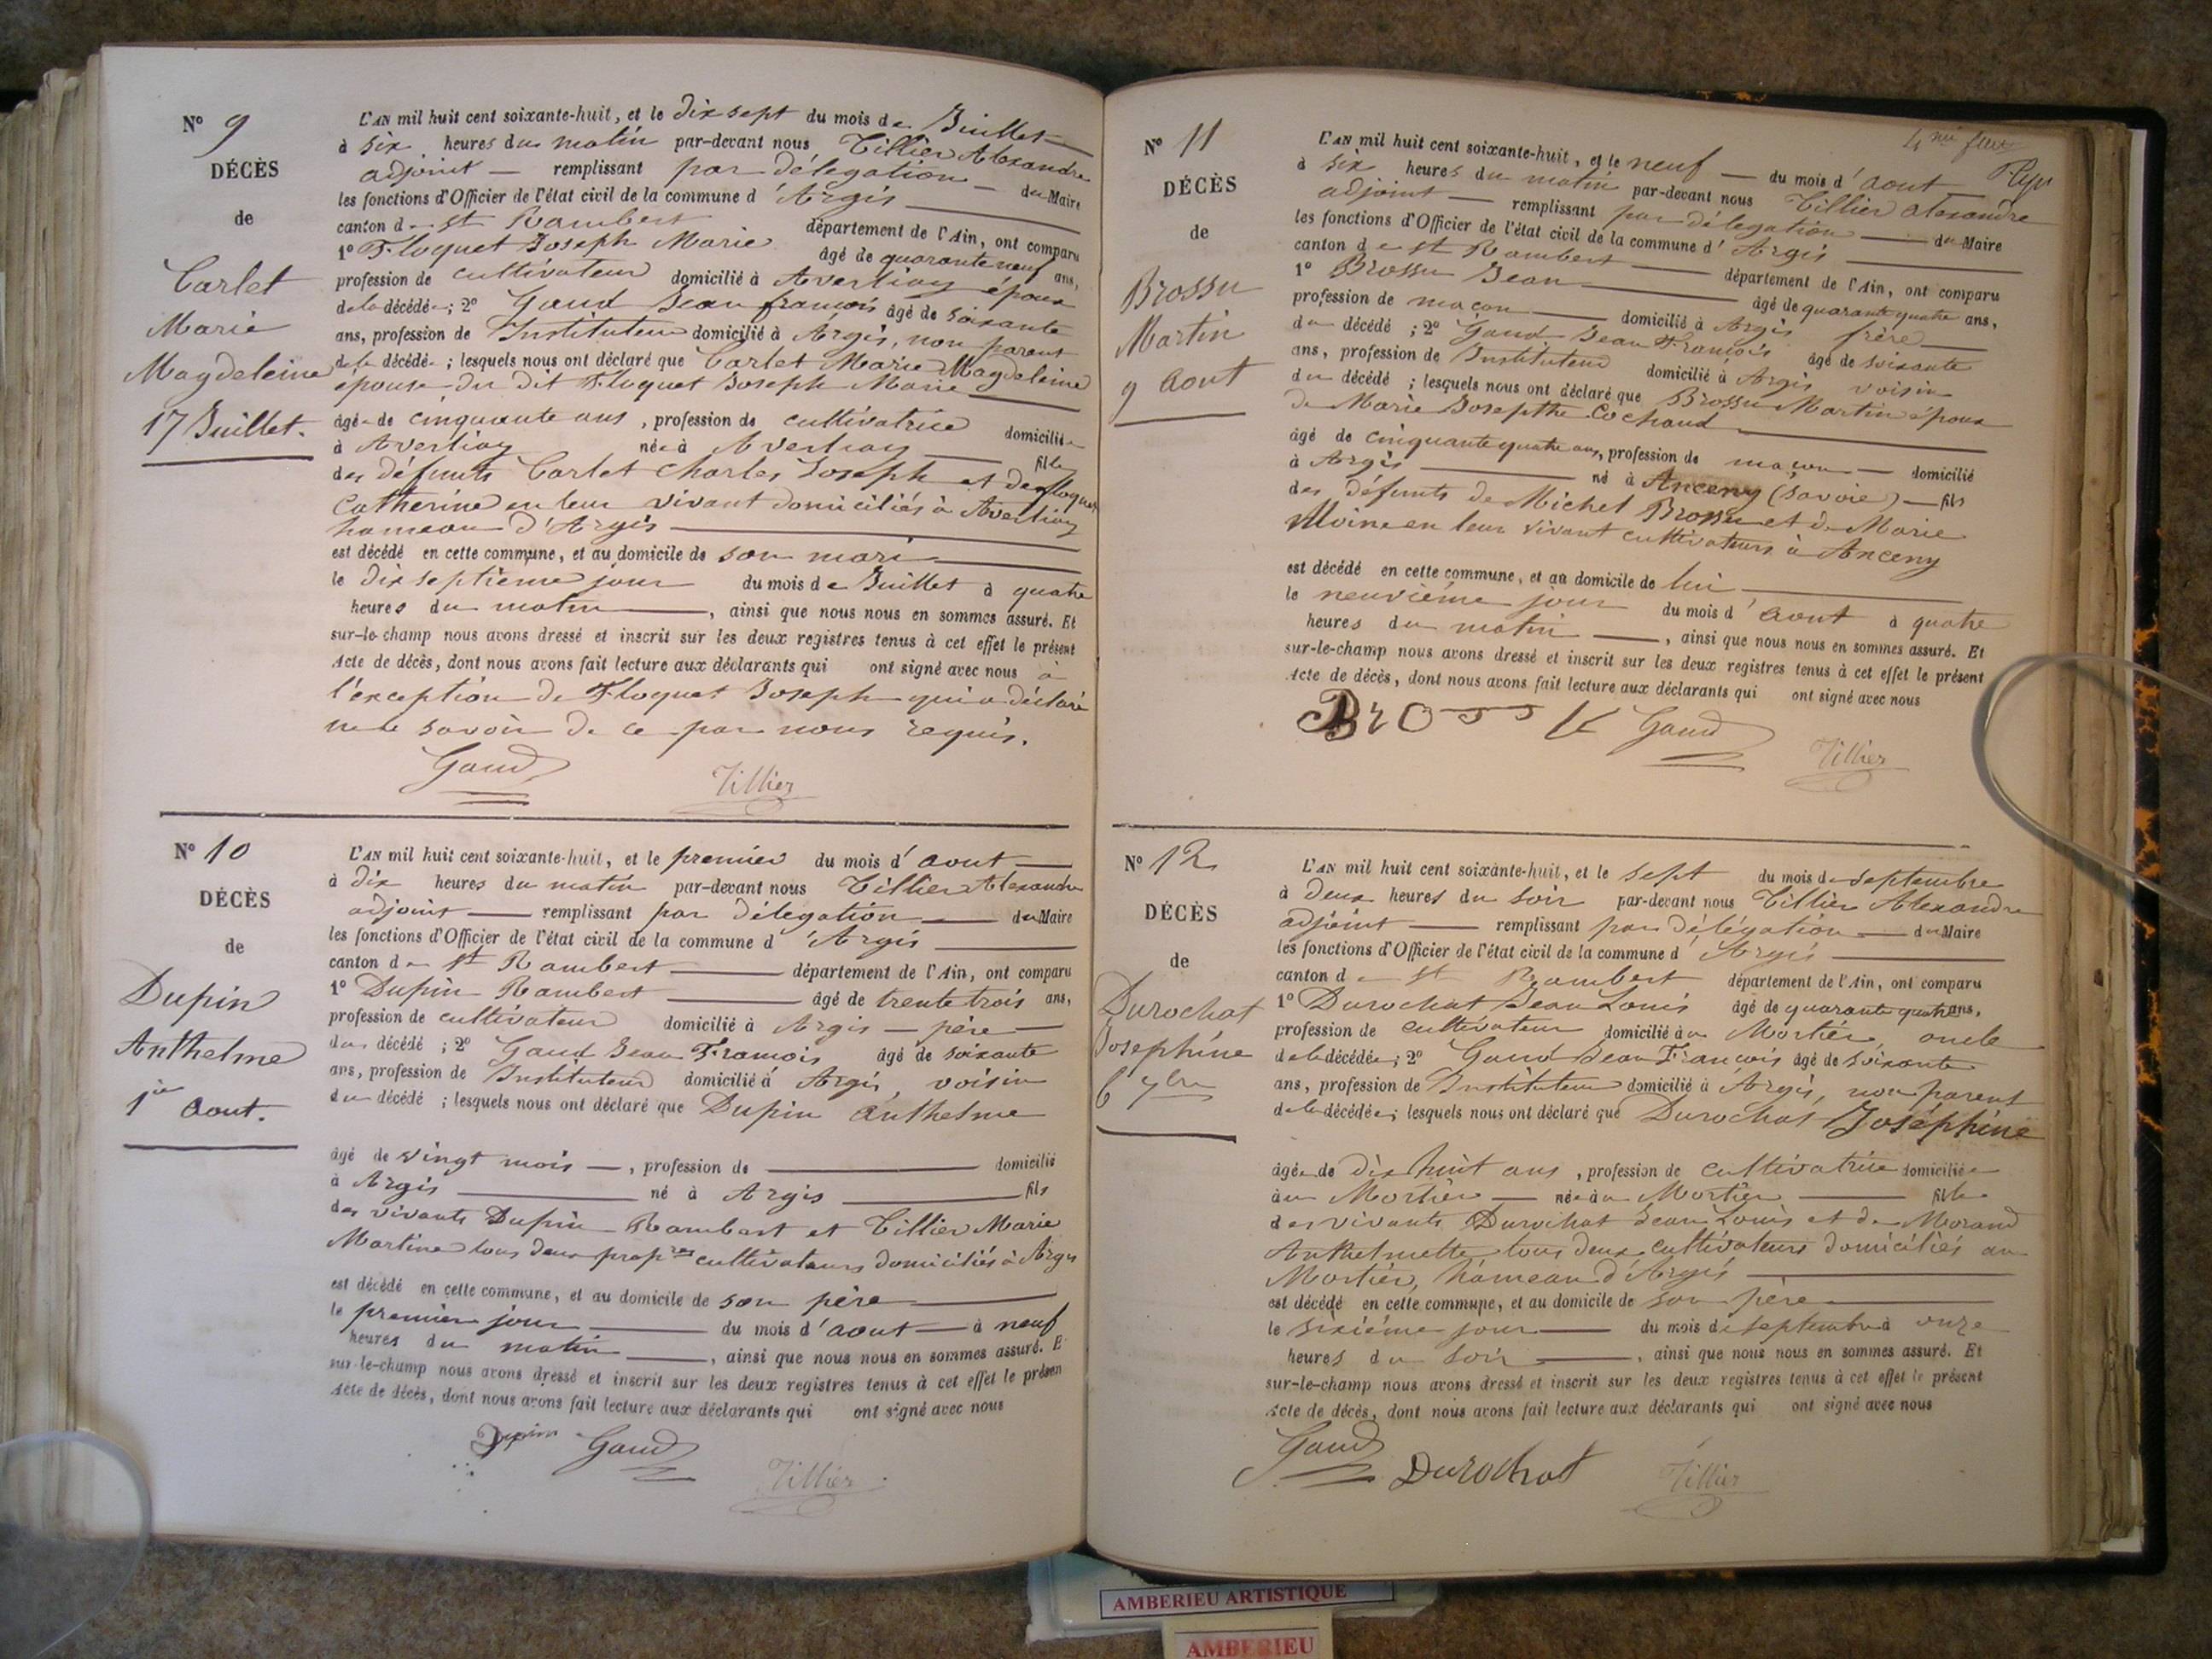 N° 9
DÉCÈS
de
Carlet
Marie
Magdeleine
17 Juillet.
L'AN mil huit cent soixante-huit, et le dix sept du mois de Juillet
à six heures du matin par-devant nous Tillier Alexandre
adjoint remplissant par délégation du Maire
les fonctions d'Officier de l'état civil de la commune d'Argis
canton de St Rambert département de l'Ain, ont comparu
1° Floquet Joseph Marie âgé de quarante neuf ans,
profession de cultivateur domicilié à Averliaz époux
de la décédée; 2° Gaud Jean françois âgé de soixante
ans, profession de Instituteur domicilié à Argis, non parent
de la décédée; lesquels nous ont déclaré que Carlet Marie Magdeleine
épouse du dit Floquet Joseph Marie
âgée de cinquante ans, profession de cultivatrice domiciliée
à Averliaz née à Averliaz fille
des défunts Carlet Charles Joseph et de floquet
Catherine en leur vivant domiciliés à Averliaz
hameau d'Argis
est décédé en cette commune, et au domicile de son mari
le dix septième jour du mois de Juillet à quatre
heures du matin, ainsi que nous nous en sommes assuré. Et
sur-le-champ nous avons dressé et inscrit sur les deux registres tenus à cet effet le présent
Acte de décès, dont nous avons fait lecture aux déclarants qui ont signé avec nous à
l'exception de Floquet Joseph qui a déclaré
ne le savoir de ce par nous requis.
Gaud Tillier
N° 10
DÉCÈS
de
Dupin
Anthelme
1er aout.
L'AN mil huit cent soixante-huit, et le premier du mois d'aout
à dix heures du matin par-devant nous Tillier Alexandre
adjoint remplissant par délégation du Maire
les fonctions d'Officier de l'état civil de la commune d'Argis
canton de St Rambert département de l'Ain, ont comparu
1° Dupin Rambert âgé de trente trois ans,
profession de cultivateur domicilié à Argis père
du décédé; 2° Gaud Jean François âgé de soixante
ans, profession de Instituteur domicilié à Argis, voisin
du décédé; lesquels nous ont déclaré que Dupin anthelme
âgé de vingt mois, profession de domicilié
à Argis né à Argis fils
des vivants Dupin Rambert et Tillier Marie
Martine tous deux propres cultivateurs domiciliés à Argis
est décédé en cette commune, et au domicile de son père
le premier jour du mois d'aout à neuf
heures du matin, ainsi que nous nous en sommes assuré. E
sur-le-champ nous avons dressé et inscrit sur les deux registres tenus à cet effet le présen
Acte de décès, dont nous avons fait lecture aux déclarants qui ont signé avec nous
Dupin Gaud
Tillier
N° 11
DÉCÈS
de
Brossu
Martin
9 aout
L'AN mil huit cent soixante-huit, et le neuf du mois d'aout
à six heures du matin par-devant nous Tillier alexandre
adjoint remplissant par délégation du Maire
les fonctions d'Officier de l'état civil de la commune d'Argis
canton de St Rambert département de l'Ain, ont comparu
1° Brossu Jean âgé de quarante quatre ans,
profession de maçon domicilié à Argis frère
du décédé; 2° Gaud Jean François âgé de soixante
ans, profession de Instituteur domicilié à Argis voisin
du décédé; lesquels nous ont déclaré que Brossu Martin époux
de Marie Josepthe Cochaud
âgé de cinquante quatre ans, profession de maçon domicilié
à Argis né à Anceny (Savoie) fils
des défunts de Michel Brossu et de Marie
en leur vivant cultivateurs à Anceny
est décédé en cette commune, et au domicile de lui
le neuvième jour du mois d'aout à quatre
heures du matin, ainsi que nous nous en sommes assuré. Et
sur-le-champ nous avons dressé et inscrit sur les deux registres tenus à cet effet le présent
Acte de décès, dont nous avons fait lecture aux déclarants qui ont signé avec nous
Gaud Tillier
N° 12
DÉCÈS
de
Durochat
Josephine
6 7bre
L'AN mil huit cent soixante-huit, et le sept du mois de septembre
à deux heures du soir par-devant nous Tillier Alexandre
adjoint remplissant par délégation du Maire
les fonctions d'Officier de l'état civil de la commune d'Argis
canton de St Rambert département de l'Ain, ont comparu
1° Durochat Jean Louis âgé de quarante quatre ans,
profession de cultivateur domicilié au Mortier, oncle
de la décédée; 2° Gaud Jean François âgé de soixante
ans, profession de Instituteur domicilié à Argis, non parent
de la décédée; lesquels nous ont déclaré que Durochat Joséphine
âgée de dix huit ans, profession de cultivatrice domiciliée
au Mortier née au Mortier fille
des vivants Durochat Jean Louis et de Morand
Anthelmette tous deux cultivateurs domiciliés au
Mortier, hameau d'Argis
est décédé en cette commune, et au domicile de son père
le sixième jour du mois de septembre à onze
heures du soir, ainsi que nous nous en sommes assuré. Et
sur-le-champ nous avons dressé et inscrit sur les deux registres tenus à cet effet le présent
Acte de décès, dont nous avons fait lecture aux déclarants qui ont signé avec nous
Gaud Durochat Tillier
AMBERIEU ARTISTIQUE
AMBERIEU